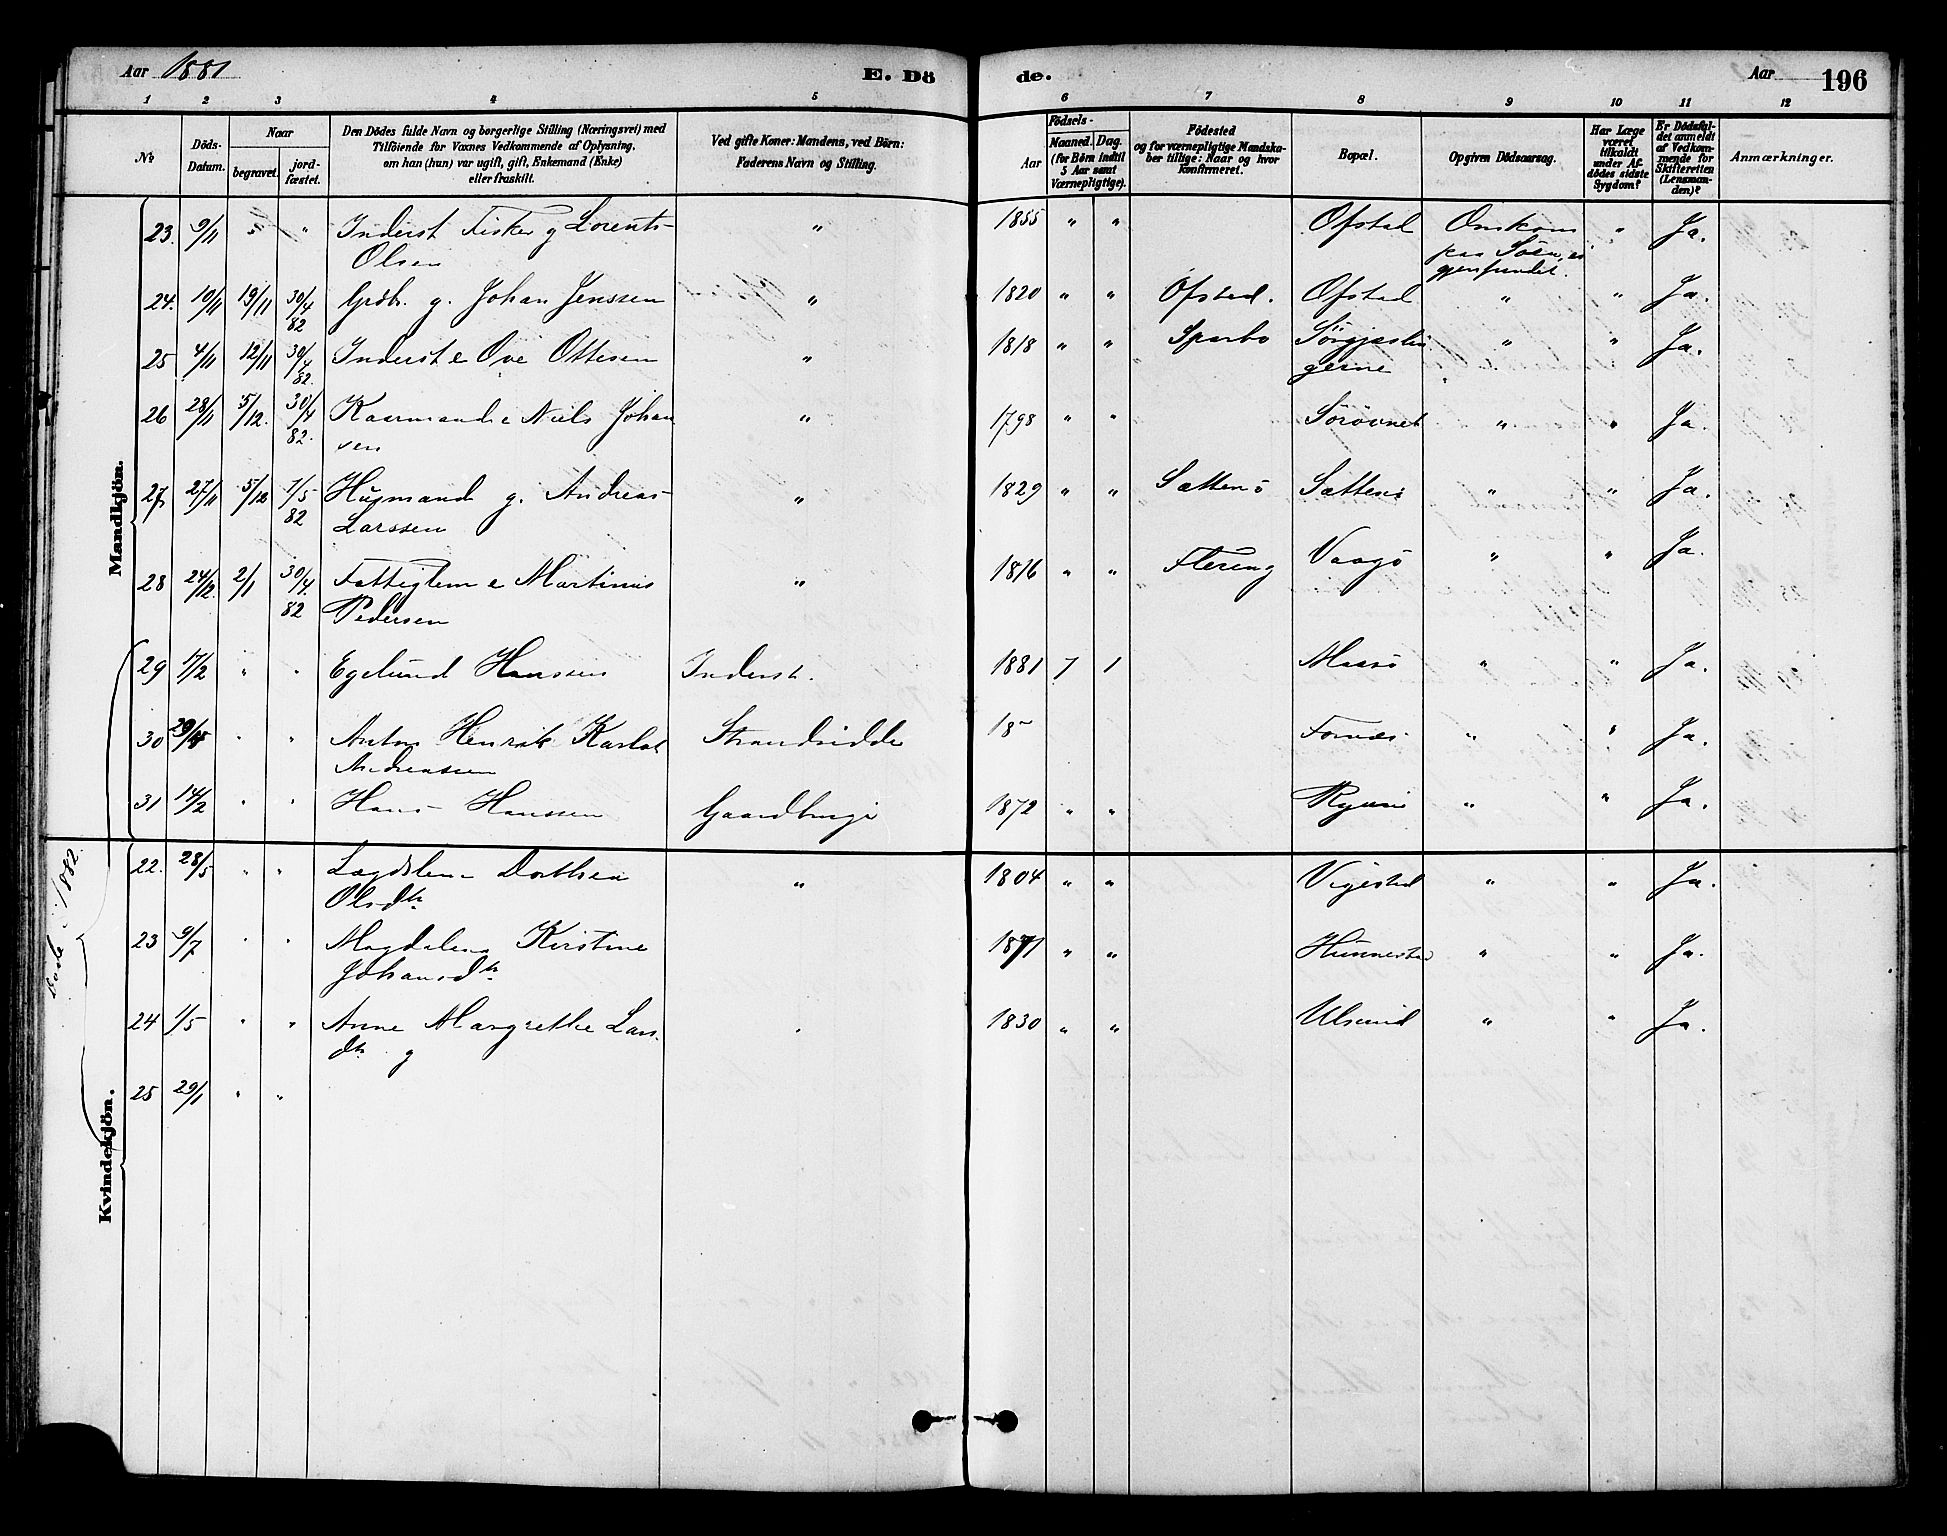 Aar 1881
E. Dö
de.
Aar
196
1 2 3 4 5 6 7 8 9 10 11 12
No
Döds-Datum.
Naar
begravet.
jord-fæstet.
Den Dödes fulde Navn og borgerlige Stilling (Næringsvei) med
Tilföiende for Voxnes Vedkommende af Oplysning,
om han (hun) var ugift, gift, Enkemand (Enke)
eller fraskilt.
Ved gifte Koner: Mandens, ved Börn:
Faderens Navn og Stilling.
Födsels-
Aar
Maaned. Dag.
(for Börn indtil
5 Aar samt
Værnepligtige).
Födested
og for værnepligtige Mandska-
ber tillige: Naar og hvor
konfirmeret.
Bopæl.
Opgiven Dödsaarsag.
Har Læge
været
tilkaldt
under Af-
dödes sidste
Sygdom?
Er Dödsfal-
det anmeldt
af Vedkom-
mende for
Skifteretten
(Lensman-
den)?
Anmærkninger.
Mandkjön.
23. 9/11 " Inderst Fisker g Lorents " 1855 " " Ofstad Omkom " Ja.
Olsen paa Söen,
gjenfundet.
24. 10/11 19/11 30/4 82 Grdb. g. Johan Jenssen " 1820 " " Ofstad. Ofstad " " Ja.
25 4/11 12/11 30/4 82. Inderst e Ove Ottesen " 1818 " " Sparbo " " Ja.
gerne
26 28/11 5/12. 30/4 82. Kaarmand e Niels Johan " 1798 " " Sörövnet " " Ja.
sen
27 27/11 5/12 1/5 82 Husmand g. Andreas " 1829 " " Sættenö Sættenö " " Ja.
Larssen
28 24/12. 2/1 30/4. 82 Fattiglem e Martinus " 1816 " " Flereng Vaagö " " Ja.
Pedersen
29 17/2 " " Egelund Hanssen Inderst. 1881 7 1 Maasö " " Ja.
30 " " Anton Henrik Karlot Strandsidder 18 Fornæs " " Ja.
Andreassen
31 14/2 " " Hans Hanssen Gaardbruger 1872 " " " " Ja.
Döde i 1882.
Kvindekjön.
22. 28/5 " " Lægdslem Dorthea " 1804 " " Vigestad " " Ja.
Olsdtr
23 9/7 " " Magdalena Kirstine 1871 " " Hunnestad " " Ja.
Johansdtr
24 1/5 " " Anne Margrethe Lars 1830 " " Ulsund " " Ja.
dtr g
25 29/1 " "